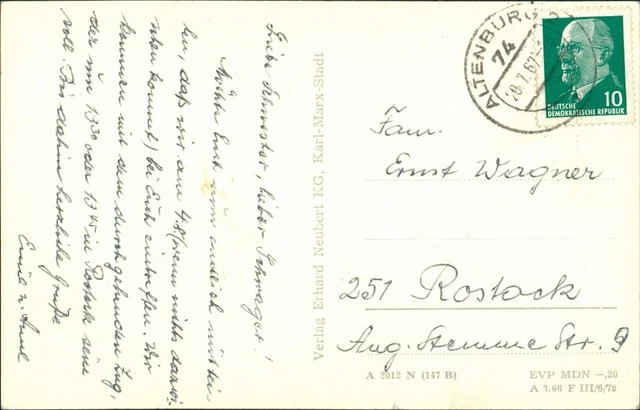 Liebe Schwester, lieber Schwager!
Möchte Euch nun endlich mittei-
len, daß wir am 4.8. (wenn nichts dazwi-
schen kommt) bei Euch eintreffen. Wir
kommen mit dem durchgehenden Zug,
der um 13³⁰ oder 13⁴⁵ in Rostock sein
soll. Bis dahin herzliche Grüße
Verlag Erhard Neubert KG, Karl-Marx-Stadt
ALTENBURG
74
20.7.67
10
DEUTSCHE
DEMOKRATISCHE REPUBLIK
Fam.
Ernst Wagner
251 Rostock
Aug. Stemme Str. 9
A 2012 N (147 B)
EVP MDN -,20
A 3/66 F III/6/75